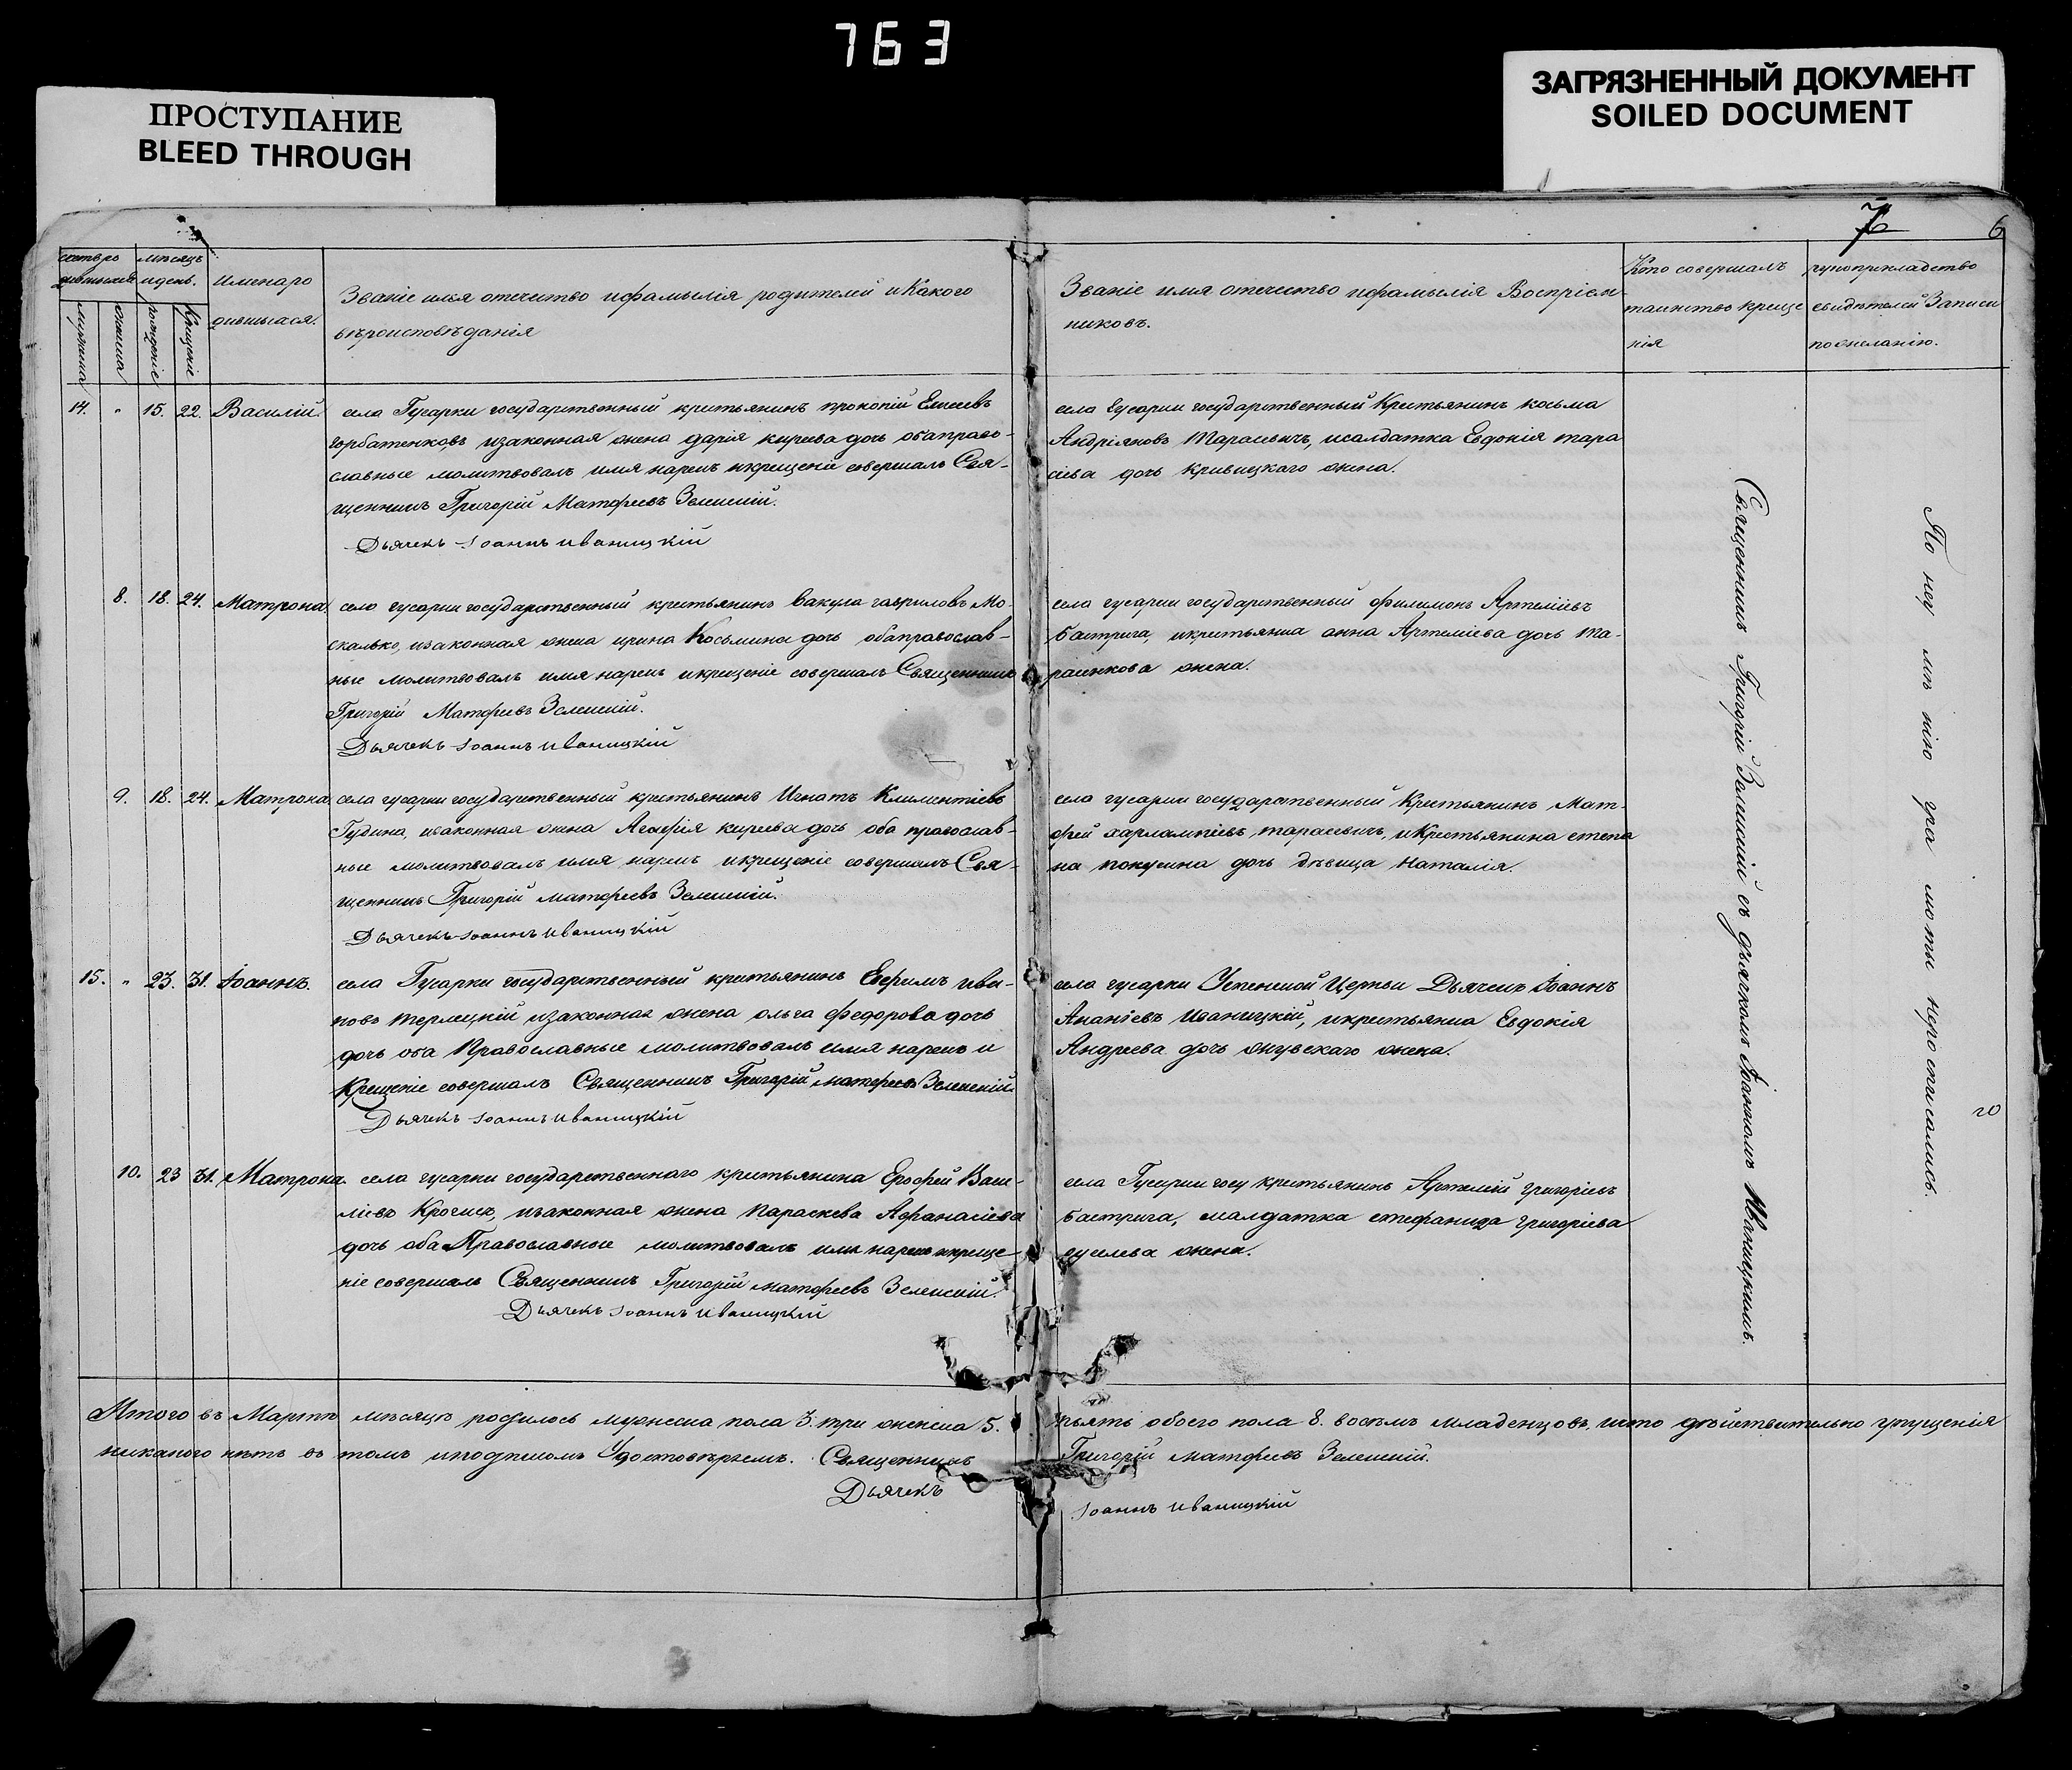 763
ПРОСТУПАНИЕ
BLEED THROUGH
ЗАГРЯЗНЕННЫЙ ДОКУМЕНТ
SOILED DOCUMENT
6
мѣсяцъ
идень.
Имена ро
дившихся.
рожденіе
Крещеніе
Званіе имя отечество ифамылія родителей и Какого
вѣроисповѣданія
Званіе имя отечество ифамылія Воспріем
никовъ.
Кто совершалъ
таинство креще
нія
рукоприкладство
свидѣтелей Записи
по желанію.
14. " 15. 22. Василій.
села Гусарки государственный крестьянинъ прокопій Елисеевъ
горбатенковъ, изаконная жена дарія киреева дочь оба право-
славные молитвовалъ имя нарекъ икрещеніе совершалъ Свя-
щенникъ Григорій Матфеевъ Зеленскій.
Дьячекъ Іоаннъ иваницкій
села гусарки государственный Крестьянинъ косьма
Андріяновъ Тарасевичъ, исалдатка Евдокія тара
сіева дочь кривицкаго жена.
8. 18. 24. Матрона.
село гусарки государственный крестьянинъ вакула гавриловъ Мо-
скалько, изаконная жена ирина Косьмина дочь оба православ-
ные молитвовалъ имя нарекъ икрещеніе совершалъ Священникъ
Григорій Матфеевъ Зеленскій.
Дьячекъ Іоаннъ иваницкій
села гусарки государственный филимонъ Артеміевъ
бастрига, икрестьянка анна Артеміева дочь та-
расенкова жена.
9. 18. 24. Матрона
села гусарки государственный крестьянинъ Игнатъ Климентіевъ
Гудина, изаконная жена Агафія киреева дочь оба православ-
ные молитвовалъ имя нарекъ икрещеніе совершалъ Свя-
щенникъ Григорій матфеевъ Зеленскій.
Дьячекъ Іоаннъ иваницкій
села гусарки государственный Крестьянинъ Мат-
фей харлампіевъ тарасевичъ, иКрестьянина степа
на дочь дѣвица наталія.
15. " 23. 31. Іоаннъ.
села Гусарки государственный крестьянинъ Ефримъ ива-
новъ терлецкій изаконная жена ольга федорова дочь
дочь оба Православные молитвовалъ имя нарекъ и
Крещеніе совершалъ Священникъ Григорій матфеевъ Зеленскій.
Дьячекъ Іоаннъ иваницкій
села гусарки Успенской Церкви Дьячекъ Іоаннъ
Ананіевъ Иваницкій, икрестьянка Евдокія
Андреева дочь жена.
10. 23 31. Матрона.
села гусарки государственнаго крестьянина Ерофей Васи-
ліевъ, изаконная жена параскева Афанасіева
дочь оба Православные молитвовалъ имя нарекъ икреще-
ніе совершалъ Священникъ Григорій матфеевъ Зеленскій.
Дьячекъ Іоаннъ иваницкій
села Гусарки госу крестьянинъ Артемій григоріевъ
бастрига, исалдатка стефанида григоріева
гуслева жена.
Священникъ Григорій Зеленскій съ дьячкомъ Іоанномъ Иваницкимъ.
По неу мѣ нію гра моты неросписались.
Итого въ Мартѣ мѣсяцѣ родилось мужеска пола 3. три женска 5. пять обоего пола 8. восемъ младенцовъ, ичто дѣйствительно упущенія
никакого нѣтъ въ томъ иподписомъ Удостовѣряемъ. Священникъ Григорій матфеевъ Зеленскій.
Дьячекъ Іоаннъ иваницкій